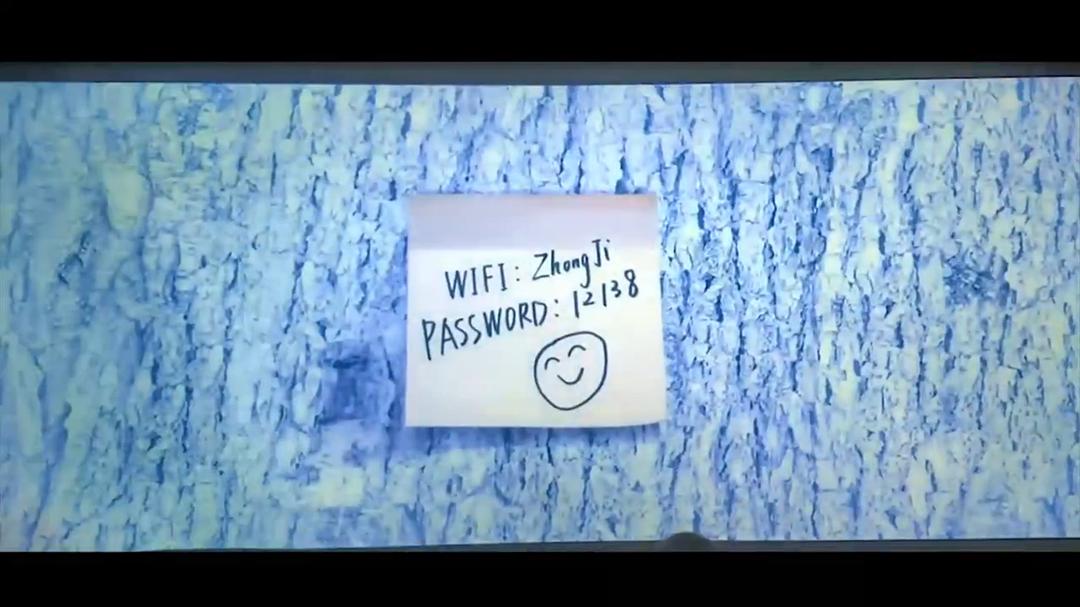 WIFI: ZhongJi
PASSWORD: 12138